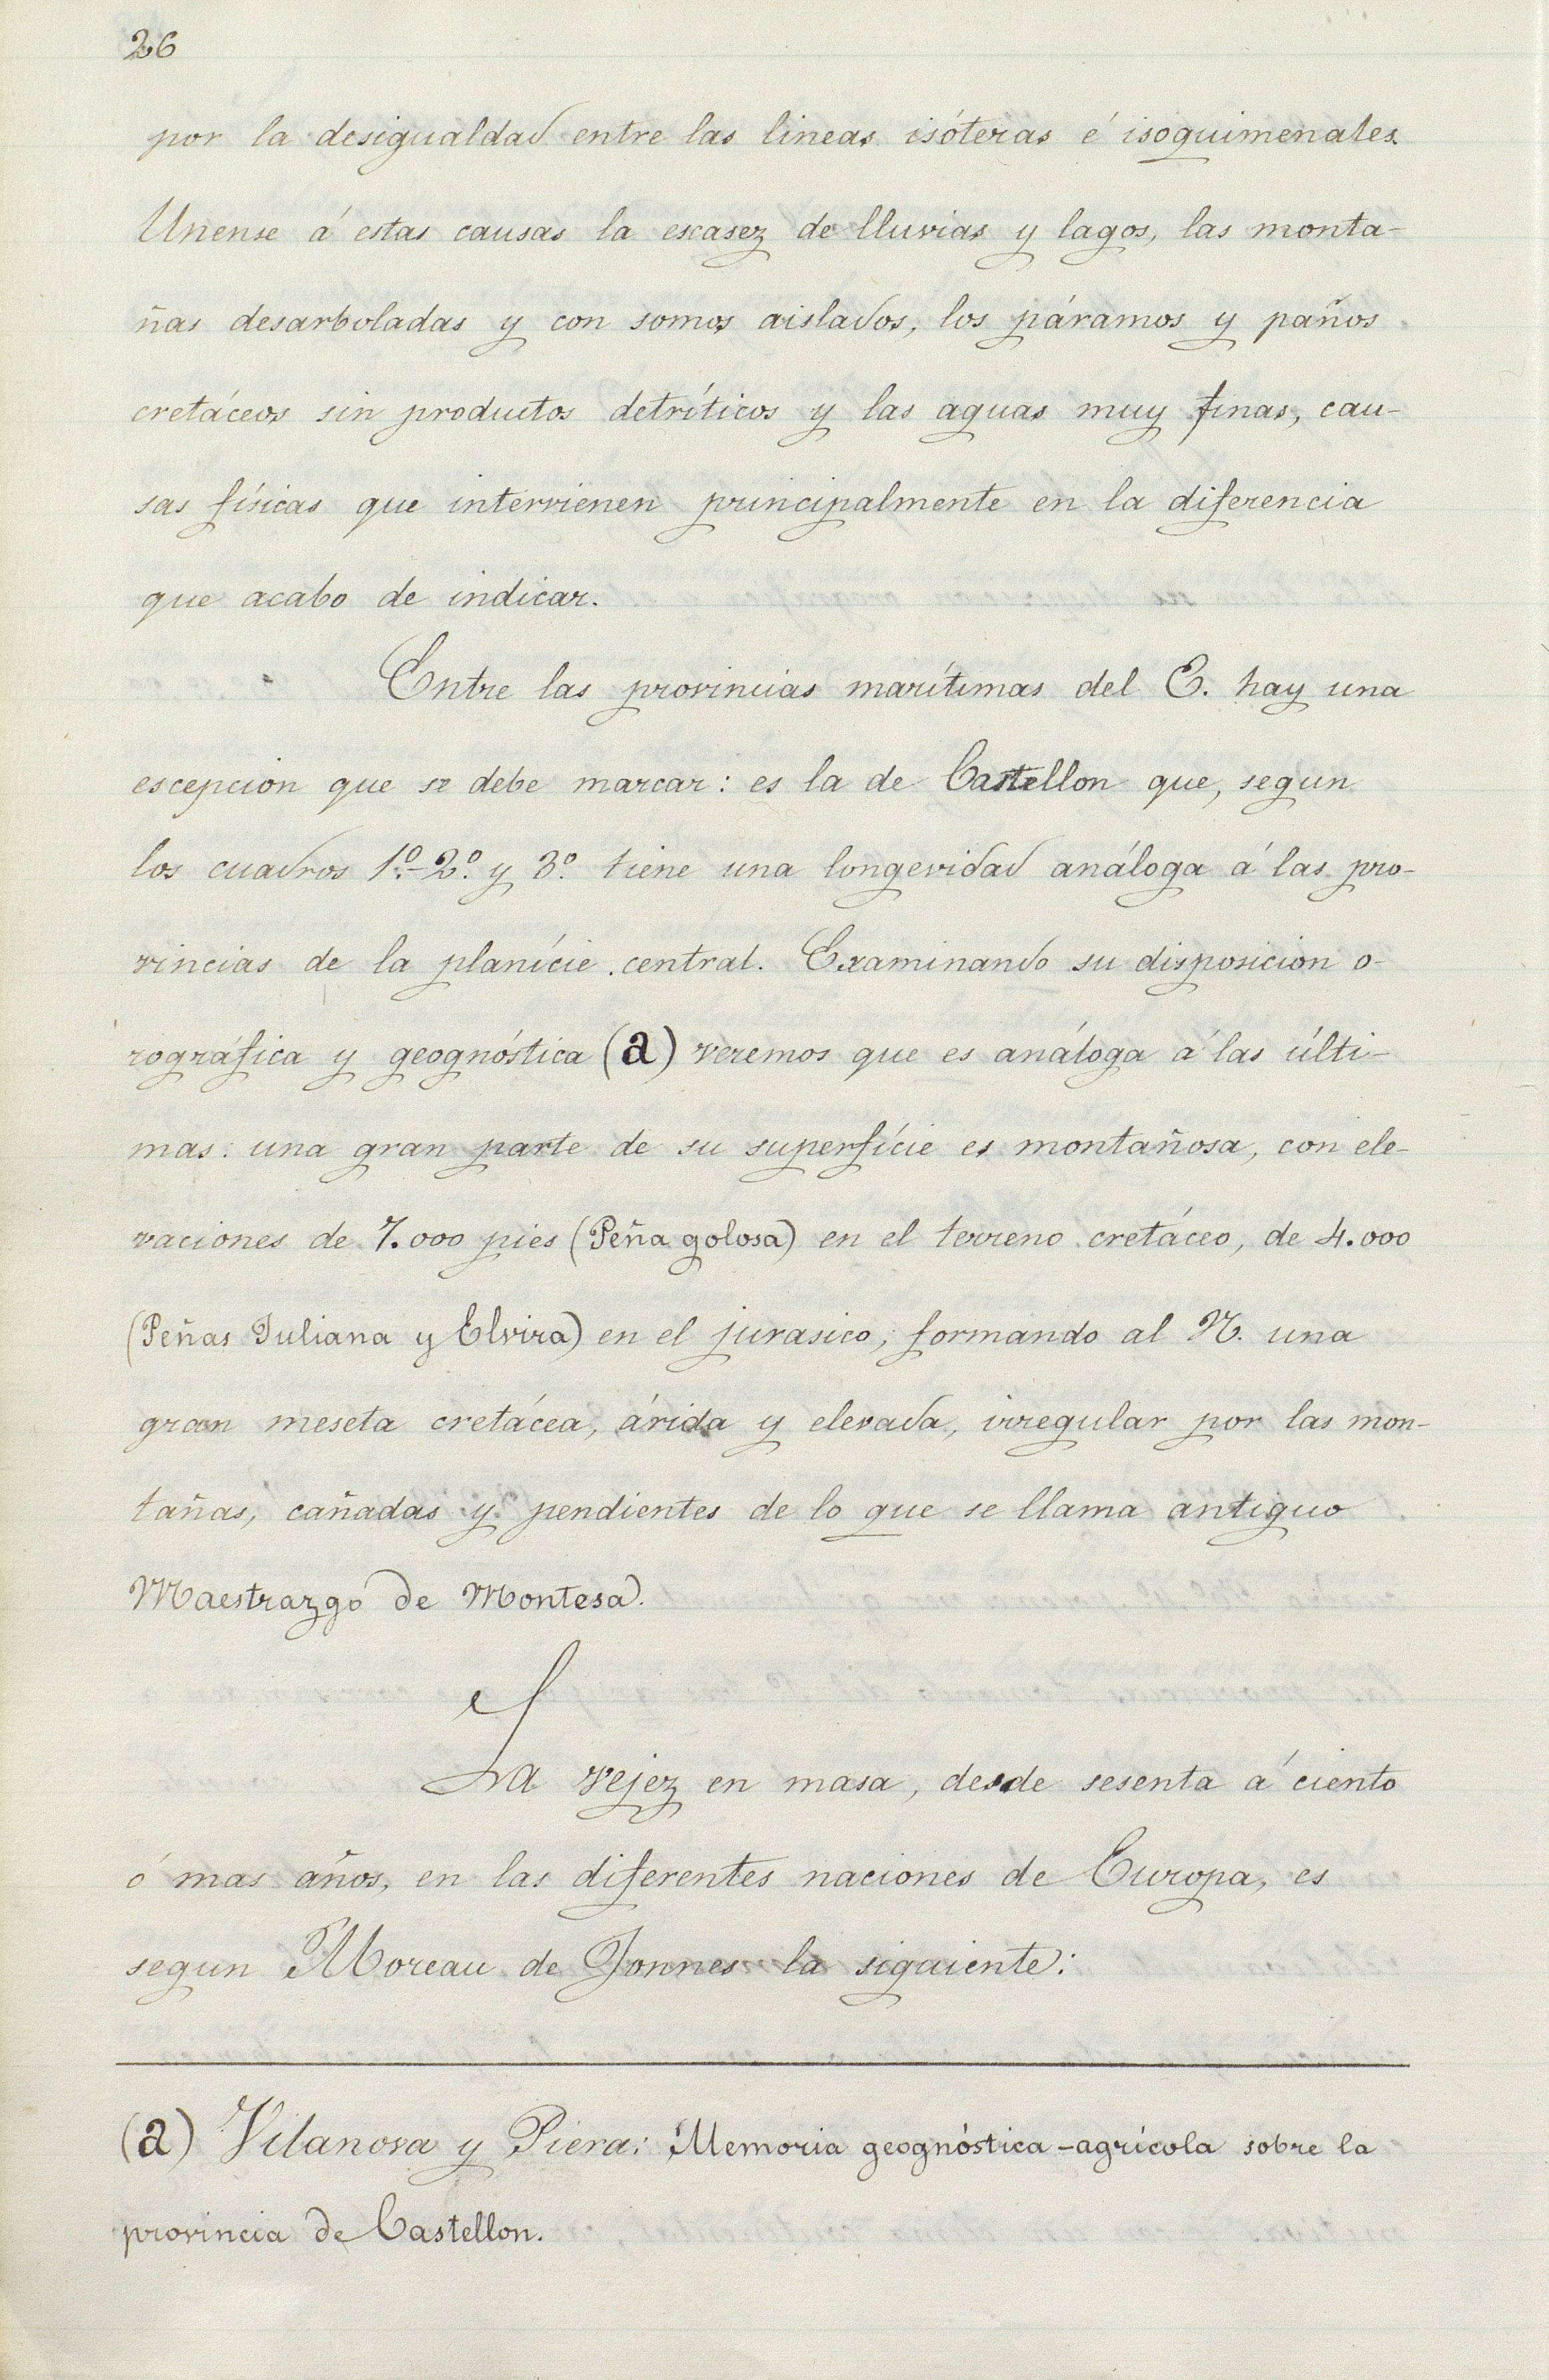 26
por la desigualdad entre las lineas isóteras é isoquimenales.
Unense á estas causas la escasez de lluvias y lagos, las monta-
ñas desarboladas y con somos aislados, los páramos y paños
cretáceos sin productos detríticos y las aguas muy finas, cau-
sas físicas que intervienen principalmente en la diferencia
que acabo de indicar.
Entre las provincias marítimas del E. hay una
escepcion que se debe marcar: es la de Castellon que, segun
los cuadros 1º.-2º. y 3º. tiene una longevidad análoga á las pro-
vincias de la planície central. Examinando su disposicion o-
rográfica y geognóstica (a) veremos que es análoga á las últi-
mas: una gran parte de su superfície es montañosa, con ele-
vaciones de 7.000 pies (Peña golosa) en el terreno cretáceo, de 4.000
(Peñas Juliana y Elvira) en el jurasico, formando al N. una
gran meseta cretácea, árida y elevada, irregular por las mon-
tañas, cañadas y pendientes de lo que se llama antiguo
Maestrazgo de Montesa.
La vejez en masa, desde sesenta á ciento
ó mas años, en las diferentes naciones de Europa, es
segun Moreau de Jonnes la siguiente:
(a) Vilanova y Piera: Memoria geognóstica-agrícola sobre la
provincia de Castellon.